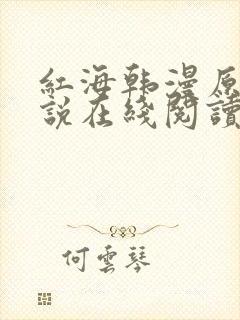 紅海韩漫原
說在綫閱讀
何雲琴